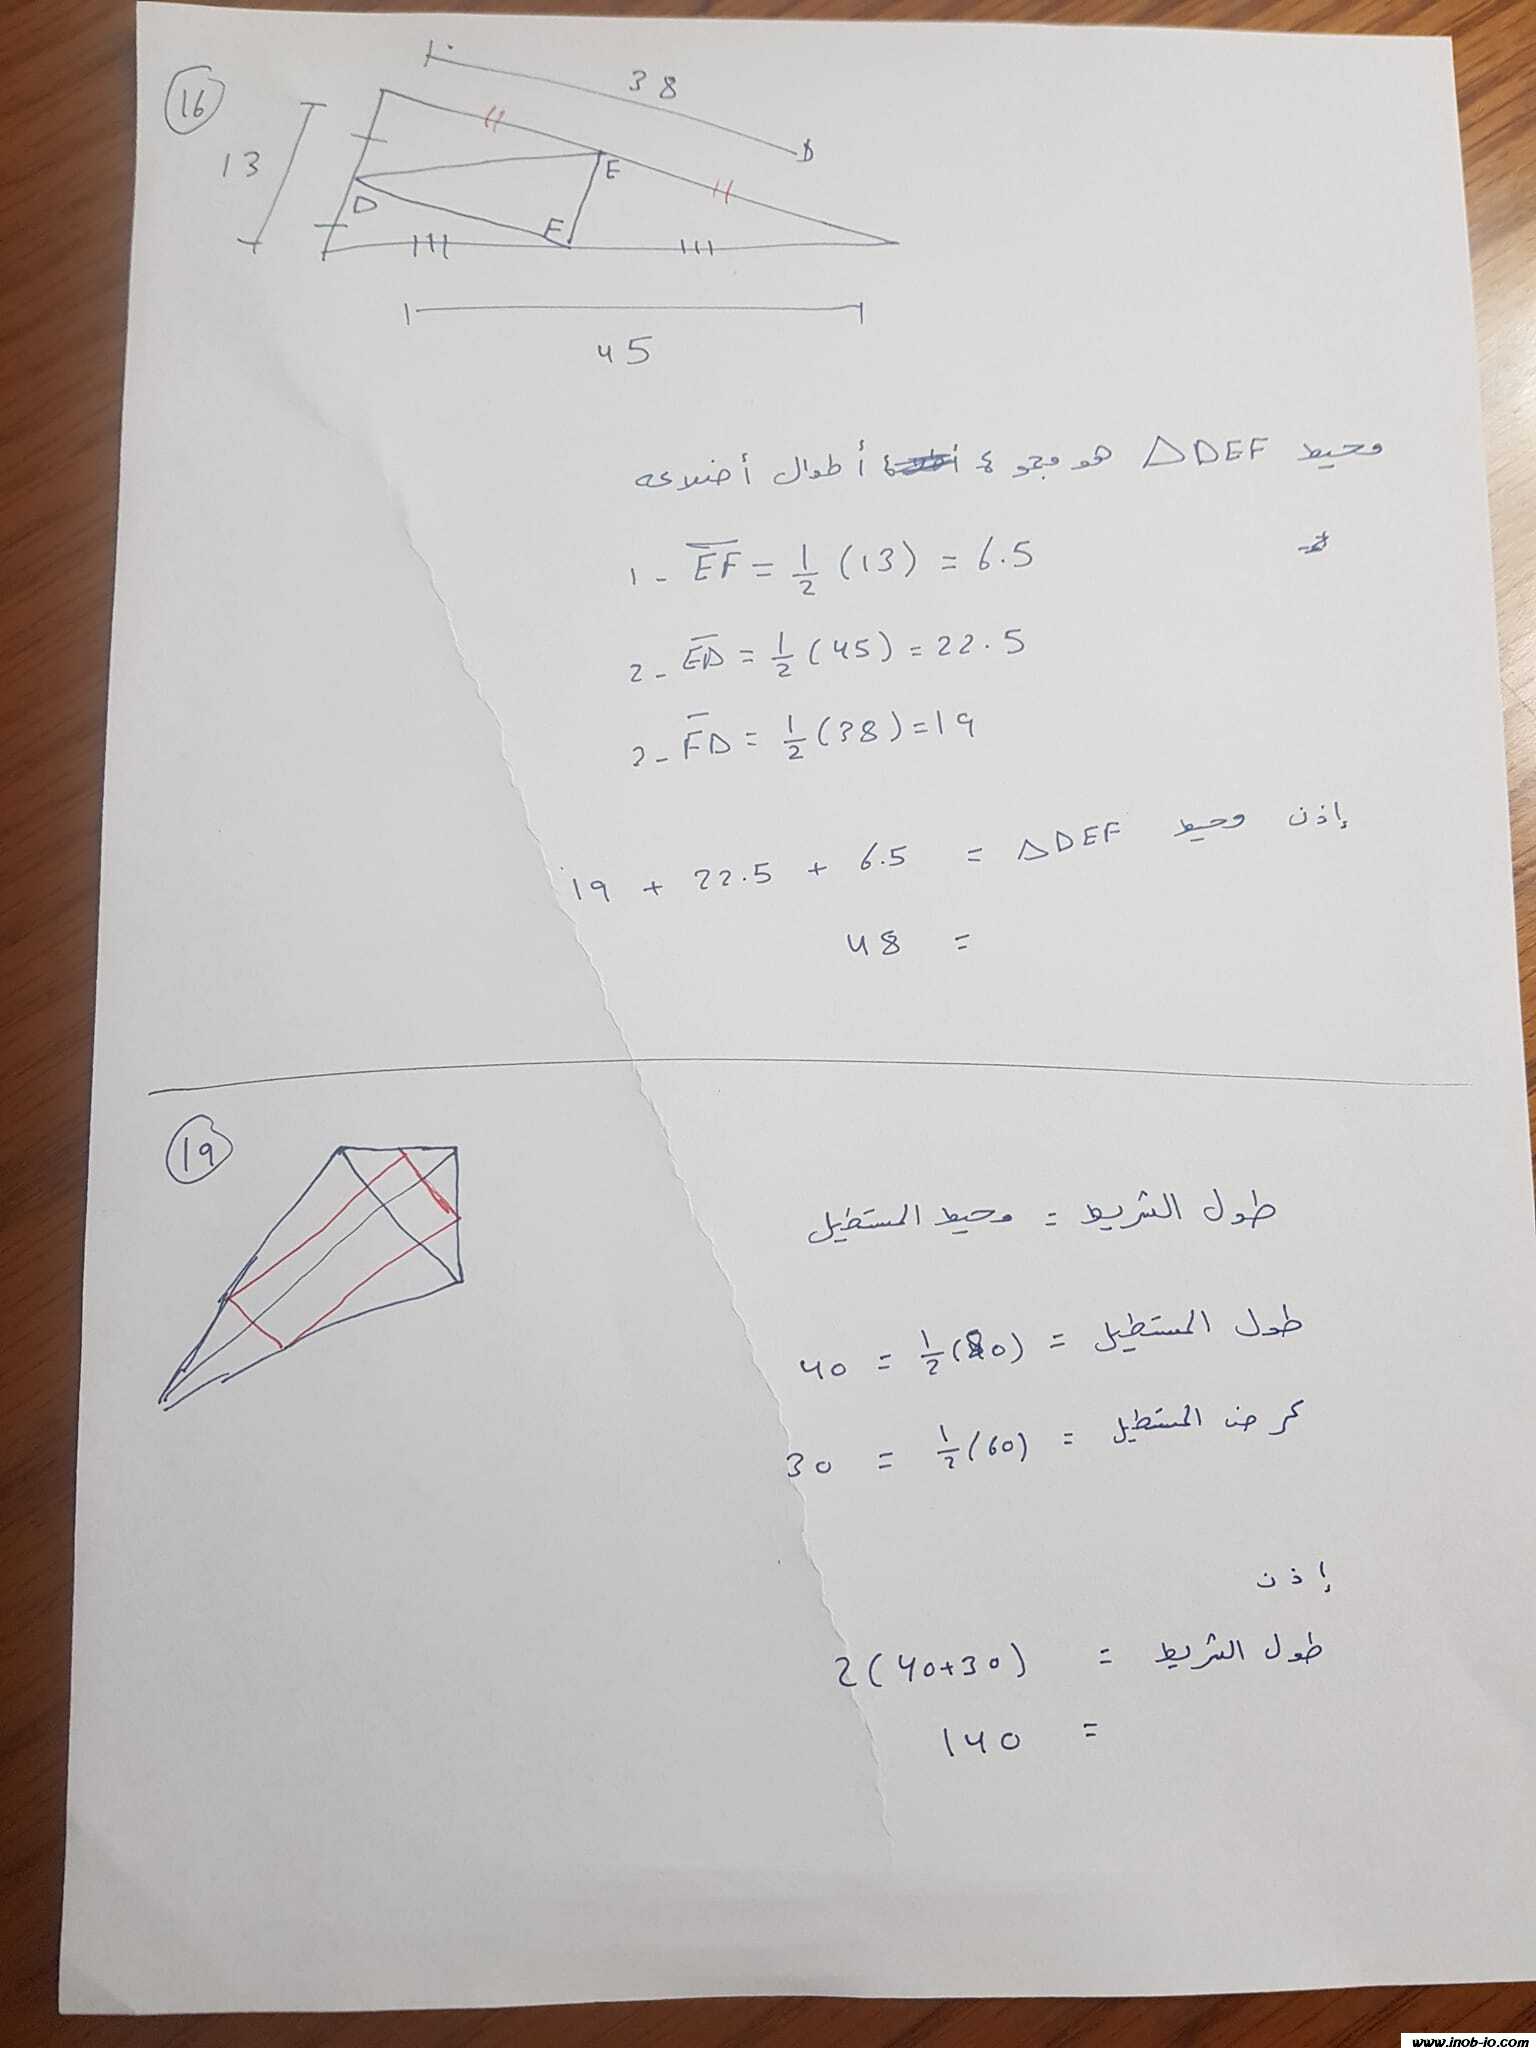 16
38
13
D
E
F
45
محيط △DEF هو مجموع أطوال أضلاعه
1- EF = 1/2 (13) = 6.5
2- ED = 1/2 (45) = 22.5
3- FD = 1/2 (38) = 19
إذن محيط △DEF = 6.5 + 22.5 + 19
= 48
19
طول الشريط = محيط المستطيل
طول المستطيل = 1/2 (80) = 40
عرض المستطيل = 1/2 (60) = 30
إذن
طول الشريط = 2(40+30)
= 140
www.inob-jo.com